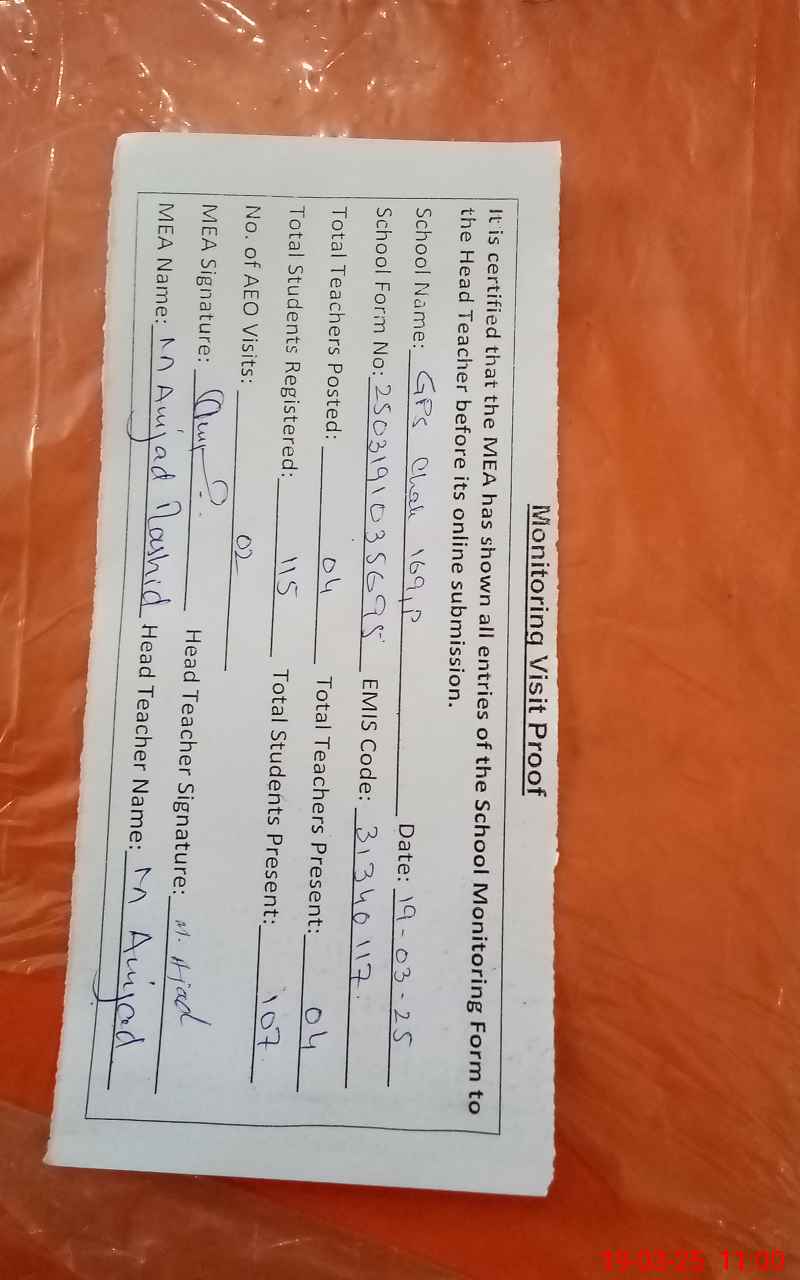 Monitoring Visit Proof
It is certified that the MEA has shown all entries of the School Monitoring Form to
the Head Teacher before its online submission.
School Name: GPS Chak 169,P Date: 19-03-25
School Form No: 25031910356995 EMIS Code: 31340117.
Total Teachers Posted: 04 Total Teachers Present: 04
Total Students Registered: 115 Total Students Present: 107
No. of AEO Visits: 02
MEA Signature: Head Teacher Signature: M. Ajad
MEA Name: M Amjad Rashid Head Teacher Name: M Amjad
19-03-25 11:00